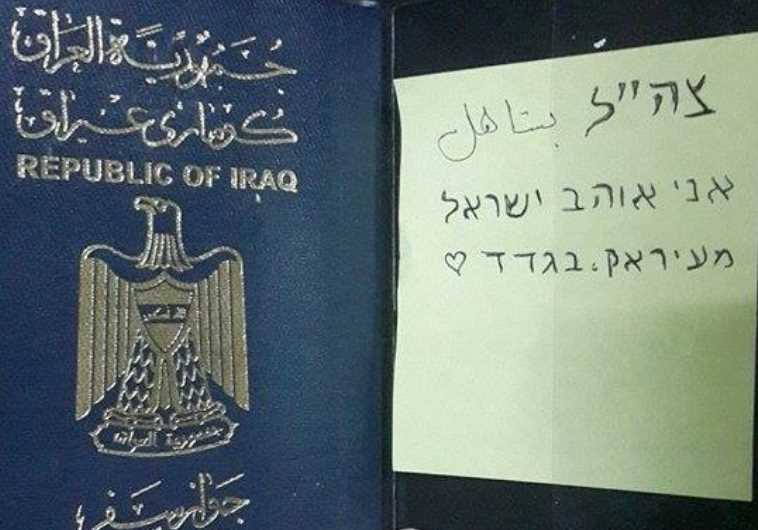 جمهورية العراق
كۆماری عێراق
REPUBLIC OF IRAQ
جمهورية العراق
جواز سفر
צה"ל بتاهل
אני אוהב ישראל
מעיראק. בגדד ♡